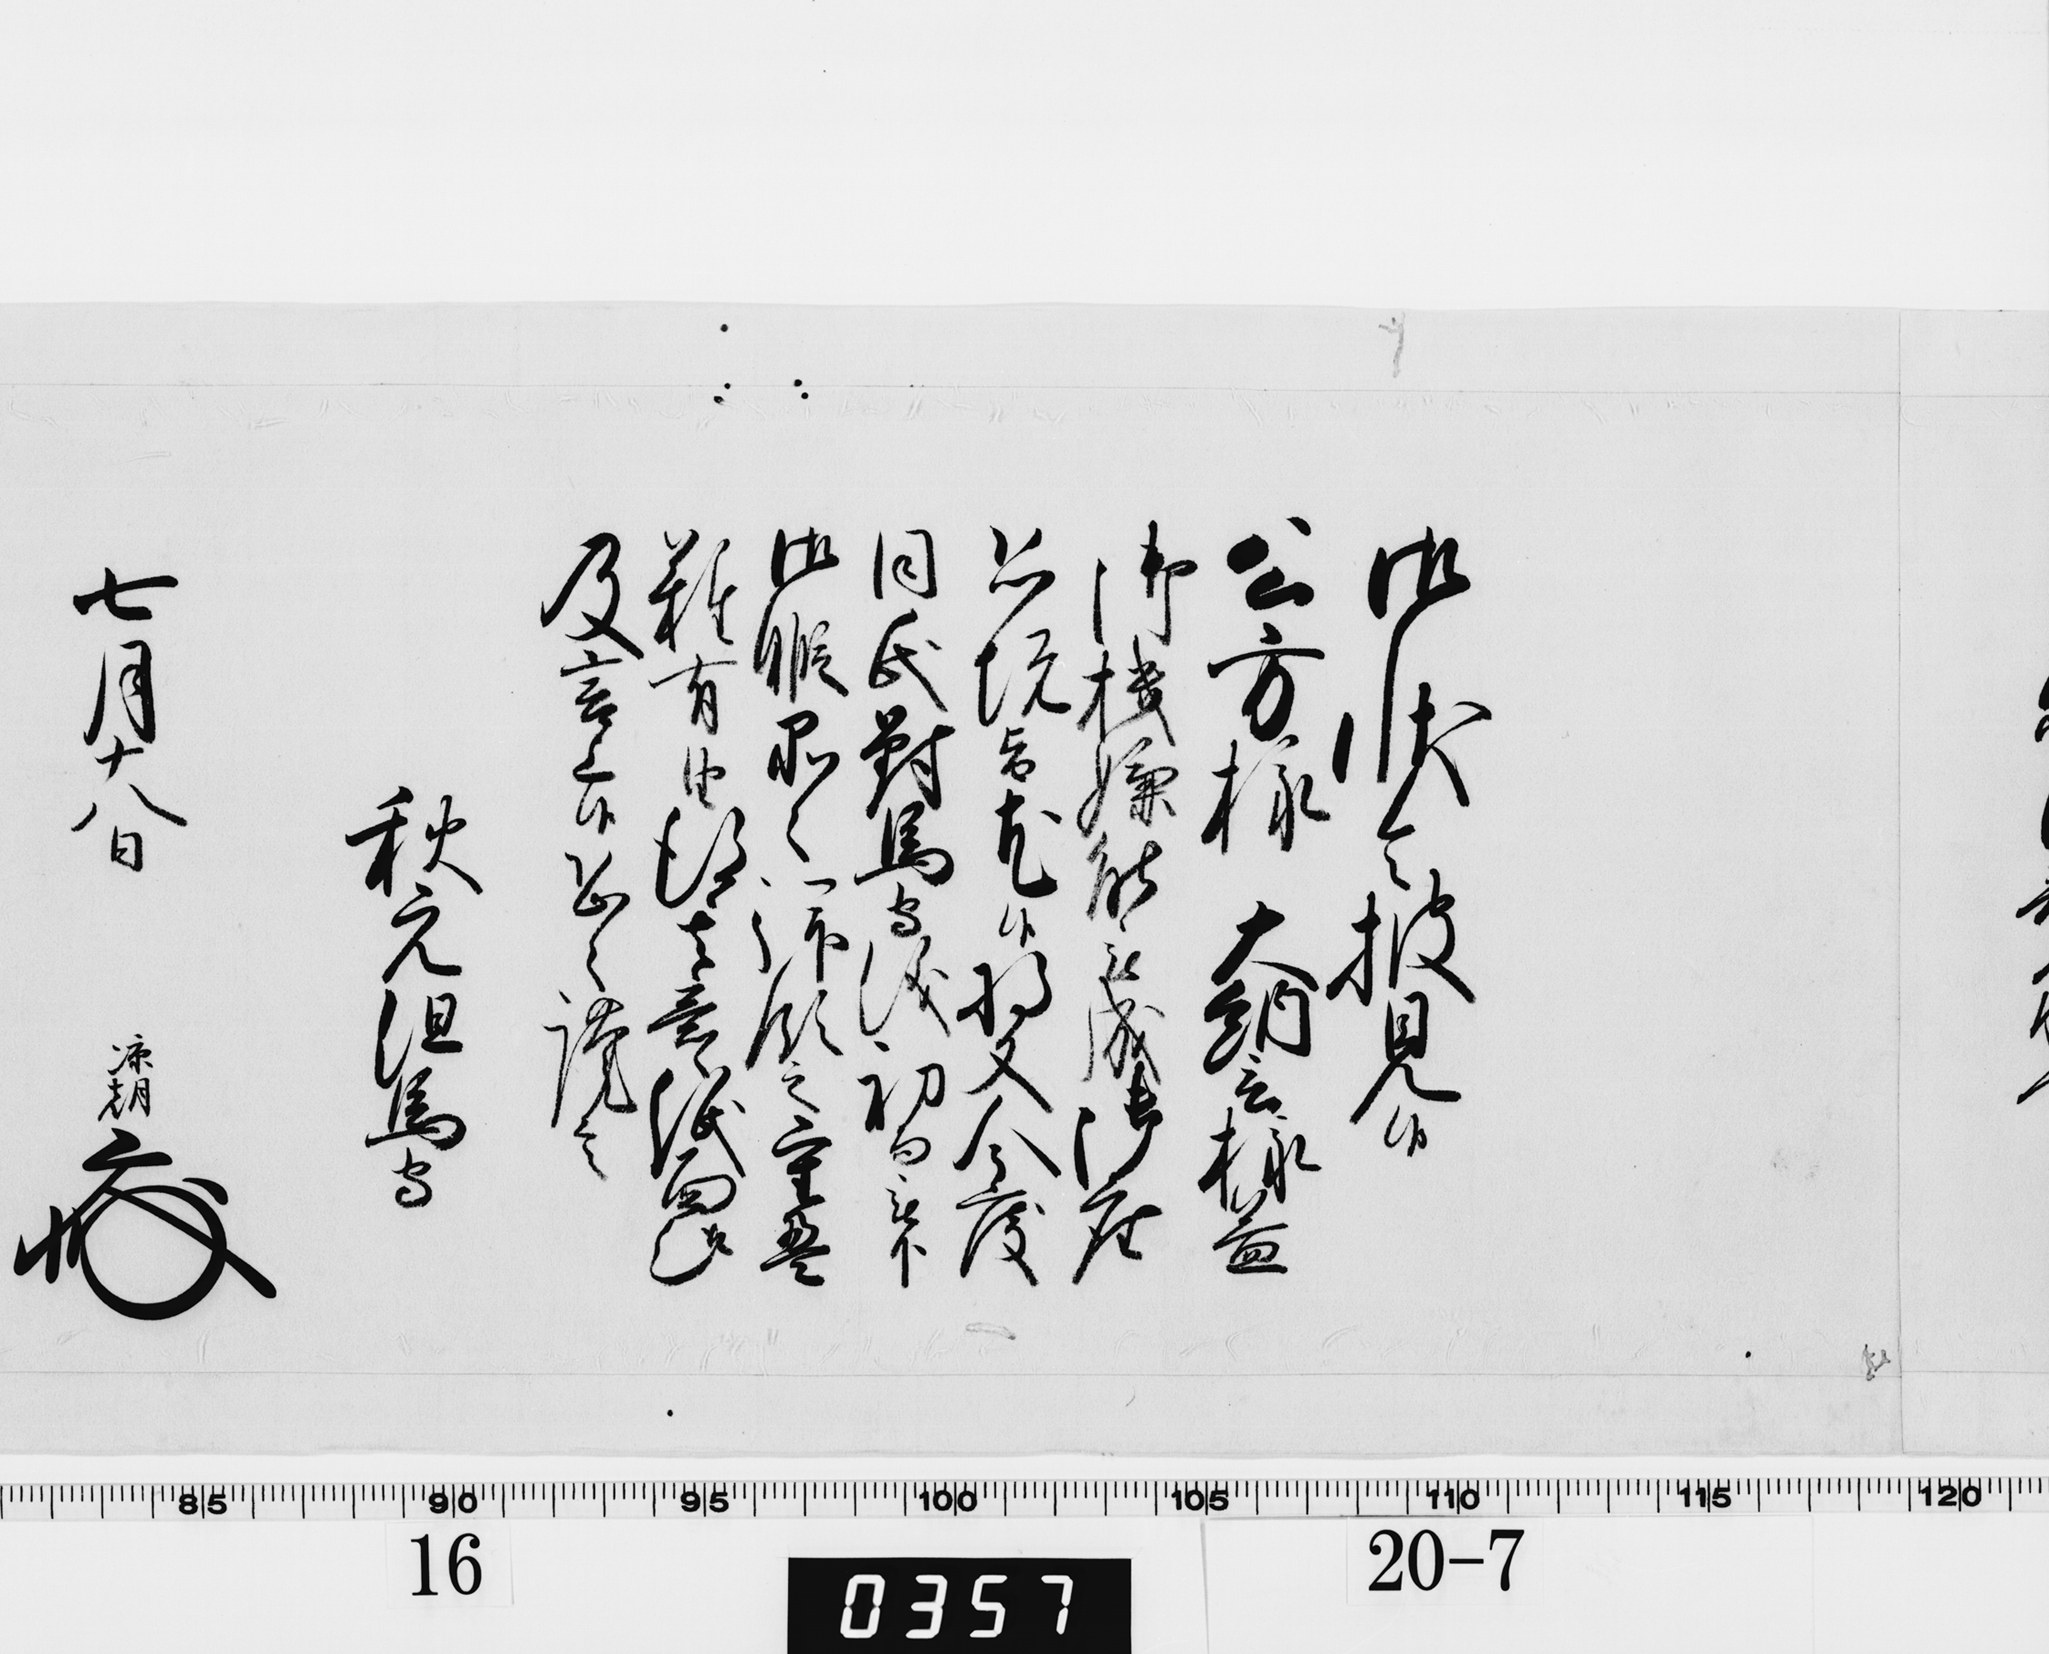 御状令披見候
公方様 大納言様益
御機嫌能被成御座
恐悦旨尤候将又今度
同氏對馬守儀初而被下
御暇
難有由得其意候紙面
及言上候恐々謹言
秋元但馬守
七月十八日
凉朝
85 90 95 100 105 110 115 120
16
0357
20-7